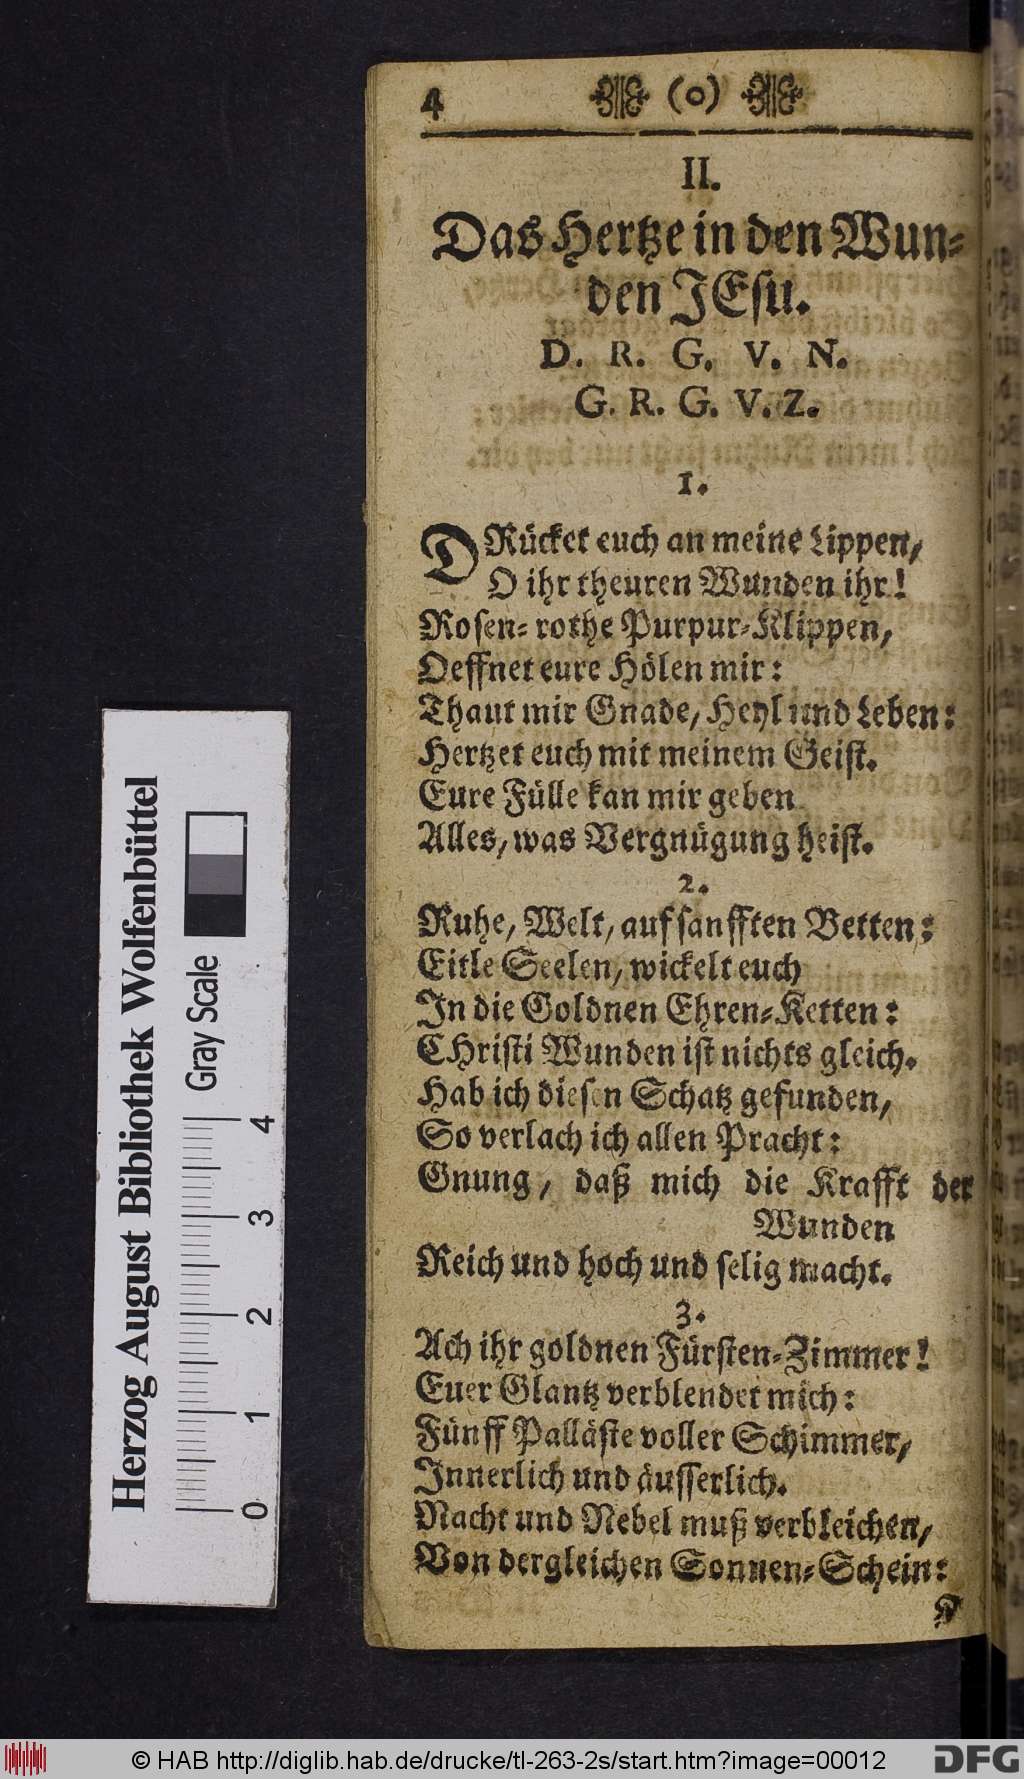 4 (o)
II.
Das Hertze in den Wun-
den JEsu.
D. R. G. V. N.
G. R. G. V. Z.
1.
DRücket euch an meine Lippen,
O ihr theuren Wunden ihr!
Rosen-rothe Purpur-Klippen,
Oeffnet eure Hölen mir:
Thaut mir Gnade, Heyl und Leben:
Hertzet euch mit meinem Geist.
Eure Fülle kan mir geben
Alles, was Vergnügung heist.
2.
Ruhe, Welt, auf sanfften Betten:
Eitle Seelen, wickelt euch
In die Goldnen Ehren-Ketten:
CHristi Wunden ist nichts gleich.
Hab ich diesen Schatz gefunden,
So verlach ich allen Pracht:
Gnung, daß mich die Krafft der
Wunden
Reich und hoch und selig macht.
3.
Ach ihr goldnen Fürsten-Zimmer!
Euer Glantz verblendet mich:
Fünff Palläste voller Schimmer,
Innerlich und äusserlich.
Nacht und Nebel muß verbleichen,
Von dergleichen Sonnen-Schein:
Herzog August Bibliothek Wolfenbüttel
Gray Scale
0 1 2 3 4
© HAB http://diglib.hab.de/drucke/tl-263-2s/start.htm?image=00012
DFG